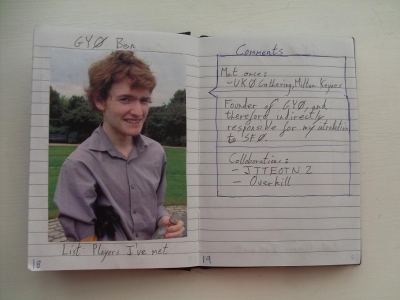 GYØ Ben
List: Players I've met
18
Comments
Met once:
- UKØ Gathering, Milton Keynes
Founder of GYØ, and
therefore indirectly
responsible for my introduction
to SFØ.
Collaborations:
- JTTEOTN 2
- Overkill
19